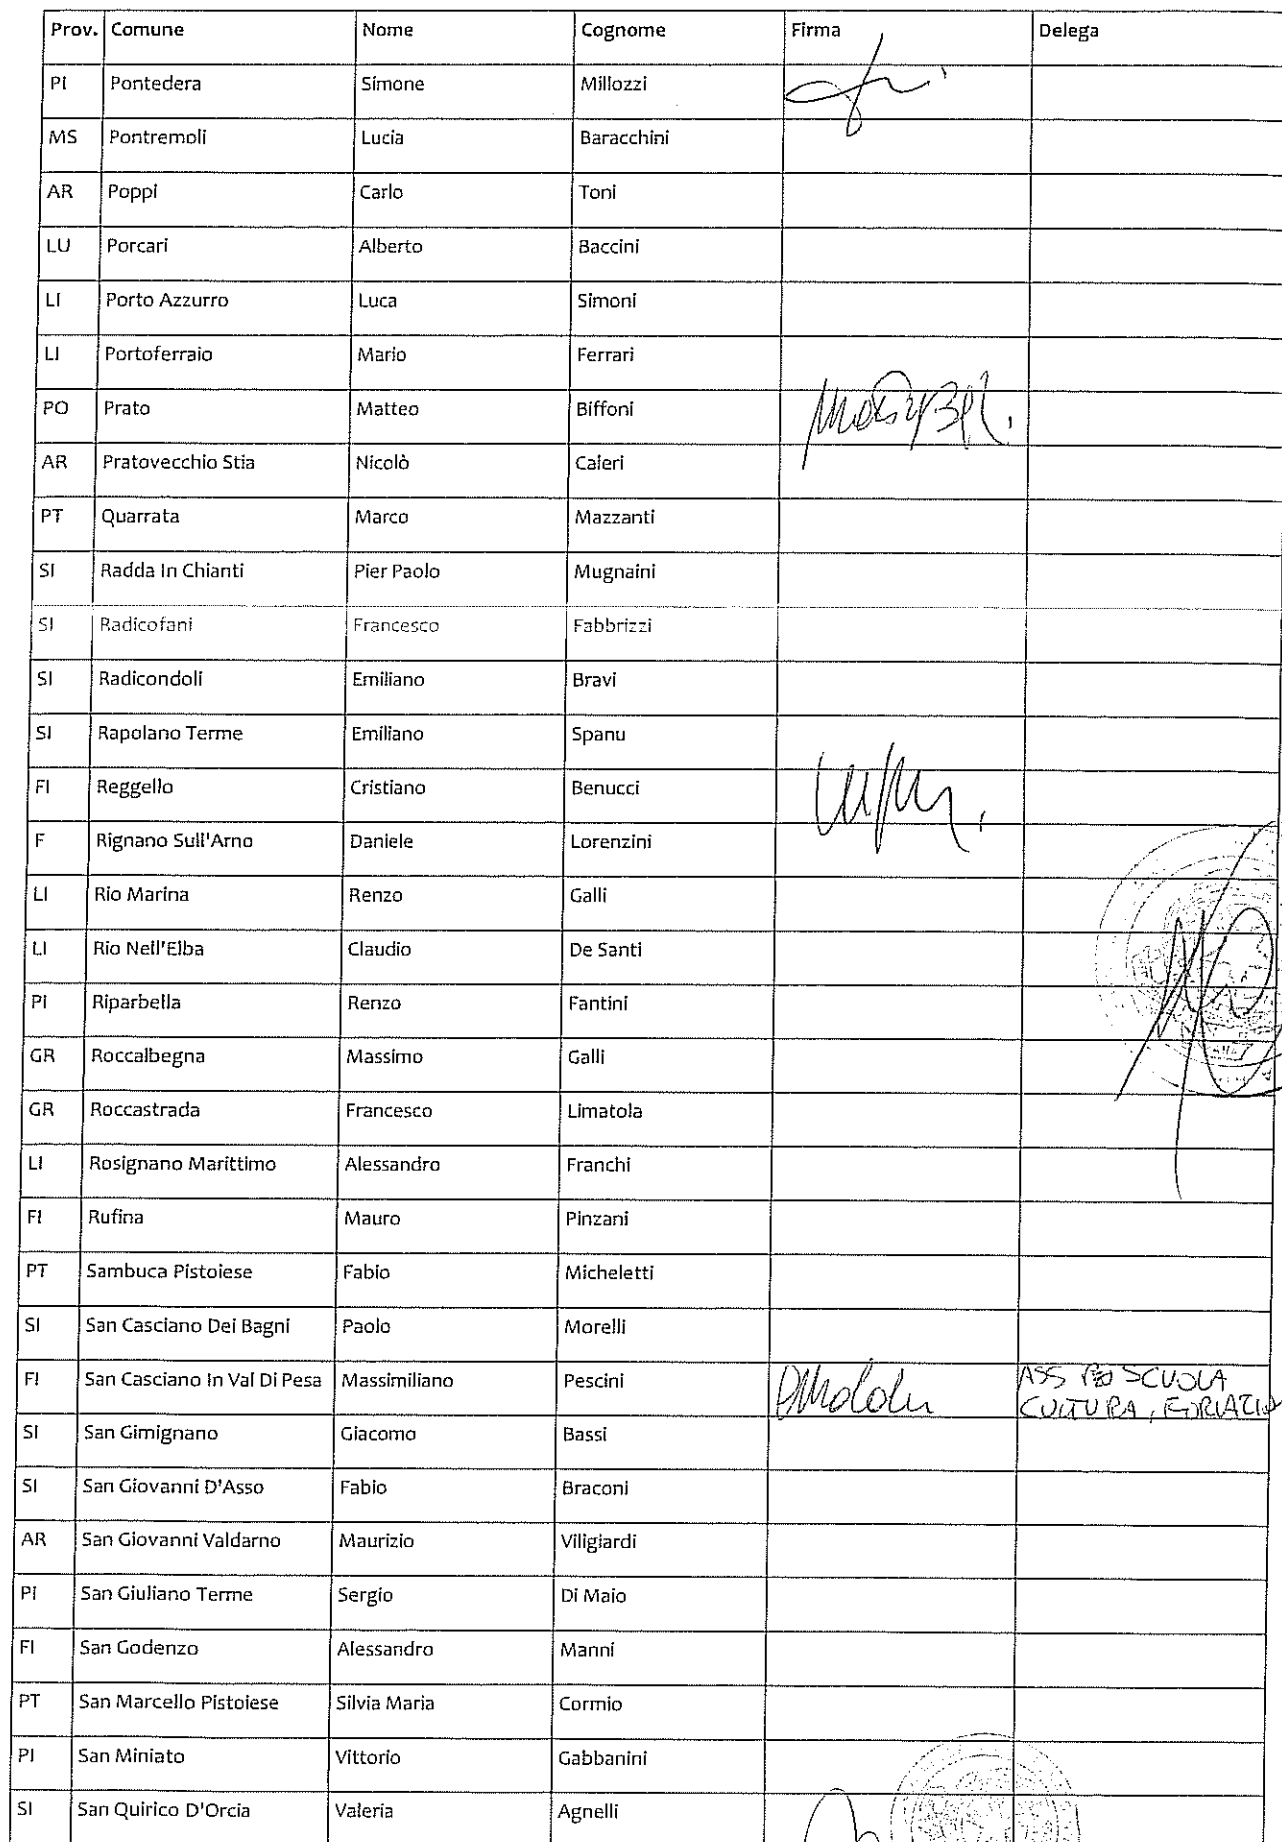 Prov. Comune Nome Cognome Firma Delega
PI Pontedera Simone Millozzi
MS Pontremoli Lucia Baracchini
AR Poppi Carlo Toni
LU Porcari Alberto Baccini
LI Porto Azzurro Luca Simoni
LI Portoferraio Mario Ferrari
PO Prato Matteo Biffoni
AR Pratovecchio Stia Nicolò Caleri
PT Quarrata Marco Mazzanti
SI Radda In Chianti Pier Paolo Mugnaini
SI Radicofani Francesco Fabbrizzi
SI Radicondoli Emiliano Bravi
SI Rapolano Terme Emiliano Spanu
FI Reggello Cristiano Benucci
F Rignano Sull'Arno Daniele Lorenzini
LI Rio Marina Renzo Galli
LI Rio Nell'Elba Claudio De Santi
PI Riparbella Renzo Fantini
GR Roccalbegna Massimo Galli
GR Roccastrada Francesco Limatola
LI Rosignano Marittimo Alessandro Franchi
FI Rufina Mauro Pinzani
PT Sambuca Pistoiese Fabio Micheletti
SI San Casciano Dei Bagni Paolo Morelli
FI San Casciano In Val Di Pesa Massimiliano Pescini ASS SCUOLA
CULTURA,
SI San Gimignano Giacomo Bassi
SI San Giovanni D'Asso Fabio Braconi
AR San Giovanni Valdarno Maurizio Viligiardi
PI San Giuliano Terme Sergio Di Maio
FI San Godenzo Alessandro Manni
PT San Marcello Pistoiese Silvia Maria Cormio
PI San Miniato Vittorio Gabbanini
SI San Quirico D'Orcia Valeria Agnelli